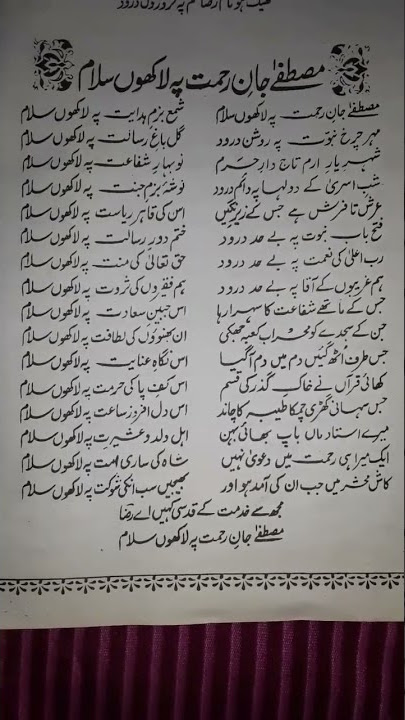 ٹھیک ہو نام رضا تم پہ کروروں درود
مصطفےٰ جانِ رحمت پہ لاکھوں سلام
مصطفےٰ جانِ رحمت پہ لاکھوں سلام شمعِ بزمِ ہدایت پہ لاکھوں سلام
مہرِ چرخِ نبوت پہ روشن درود گلِ باغِ رسالت پہ لاکھوں سلام
شہریارِ ارم تاج دارِ حرم نوبہارِ شفاعت پہ لاکھوں سلام
شبِ اسریٰ کے دولہا پہ دائم درود نوشۂ بزمِ جنت پہ لاکھوں سلام
عرش تا فرش ہے جس کے زیرِ نگیں اس کی قاہر ریاست پہ لاکھوں سلام
فتحِ بابِ نبوت پہ بے حد درود ختمِ دورِ رسالت پہ لاکھوں سلام
ربِ اعلیٰ کی نعمت پہ بے حد درود حق تعالیٰ کی منت پہ لاکھوں سلام
ہم غریبوں کے آقا پہ بے حد درود ہم فقیروں کی ثروت پہ لاکھوں سلام
جس کے ماتھے شفاعت کا سہرا رہا اس جبینِ سعادت پہ لاکھوں سلام
جن کے سجدے کو محرابِ کعبہ جھکی ان بھنوؤں کی لطافت پہ لاکھوں سلام
جس طرف اٹھ گئیں دم میں دم آگیا اس نگاہِ عنایت پہ لاکھوں سلام
کھائی قرآں نے خاکِ گذر کی قسم اس کفِ پا کی حرمت پہ لاکھوں سلام
جس سہانی گھڑی چمکا طیبہ کا چاند اس دل افروز ساعت پہ لاکھوں سلام
میرے استاد ماں باپ بھائی بہن اہلِ ولد و عشیرت پہ لاکھوں سلام
ایک میرا ہی رحمت میں دعویٰ نہیں شاہ کی ساری امت پہ لاکھوں سلام
کاش محشر میں جب ان کی آمد ہو اور بھیجیں سب انکی شوکت پہ لاکھوں سلام
مجھ سے خدمت کے قدسی کہیں اے رضا
مصطفےٰ جانِ رحمت پہ لاکھوں سلام